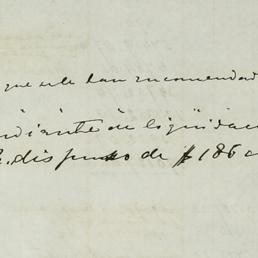 que se le han recomendad
ndiante de liqüidaci
dispuso de $ 186